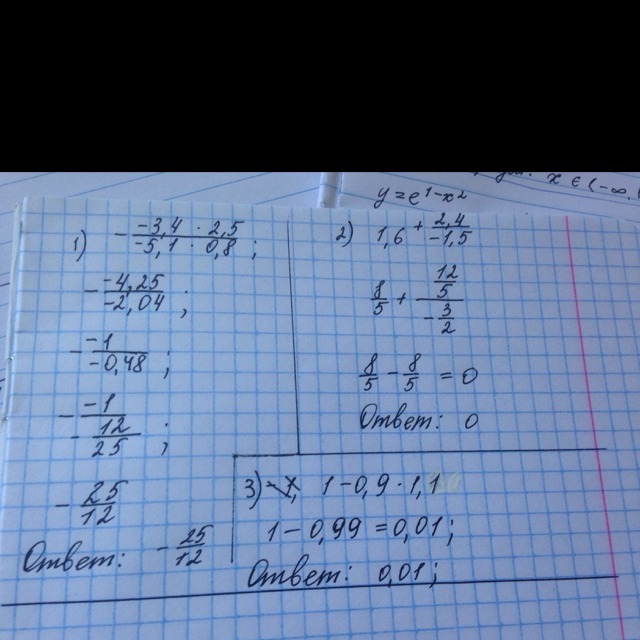 y = e^1-x²
x ∈ (-∞,
1) - -3,4 · 2,5 / -5,1 · 0,8 ;
- -4,25 / -2,04 ;
- -1 / -0,48 ;
- -1 / - 12/25 ;
- 25/12
Ответ: - 25/12
2) 1,6 + 2,4 / -1,5
8/5 + 12/5 / - 3/2
8/5 - 8/5 = 0
Ответ: 0
3) 1 - 0,9 · 1,1
1 - 0,99 = 0,01;
Ответ: 0,01;